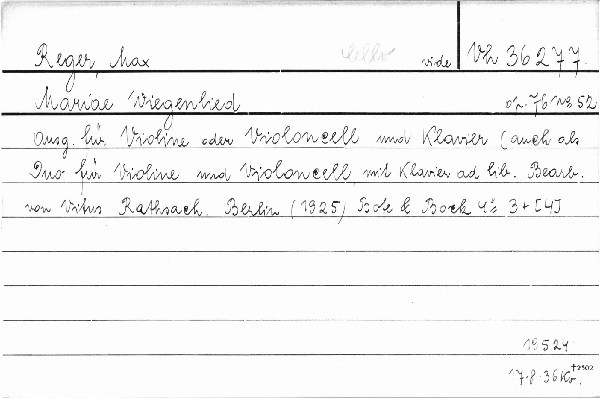 Reger, Max cello vide Vh 36277.
Mariae Wiegenlied op. 76 No 52
Ausg. für Violine oder Violoncell und Klavier (auch als
Duo für Violine und Violoncell, mit Klavier ad lib. Bearb.
von Vitus Rathsack. Berlin (1925) Bote & Bock 4° 3+[4]
19524
17.8.36 Kv. †2502